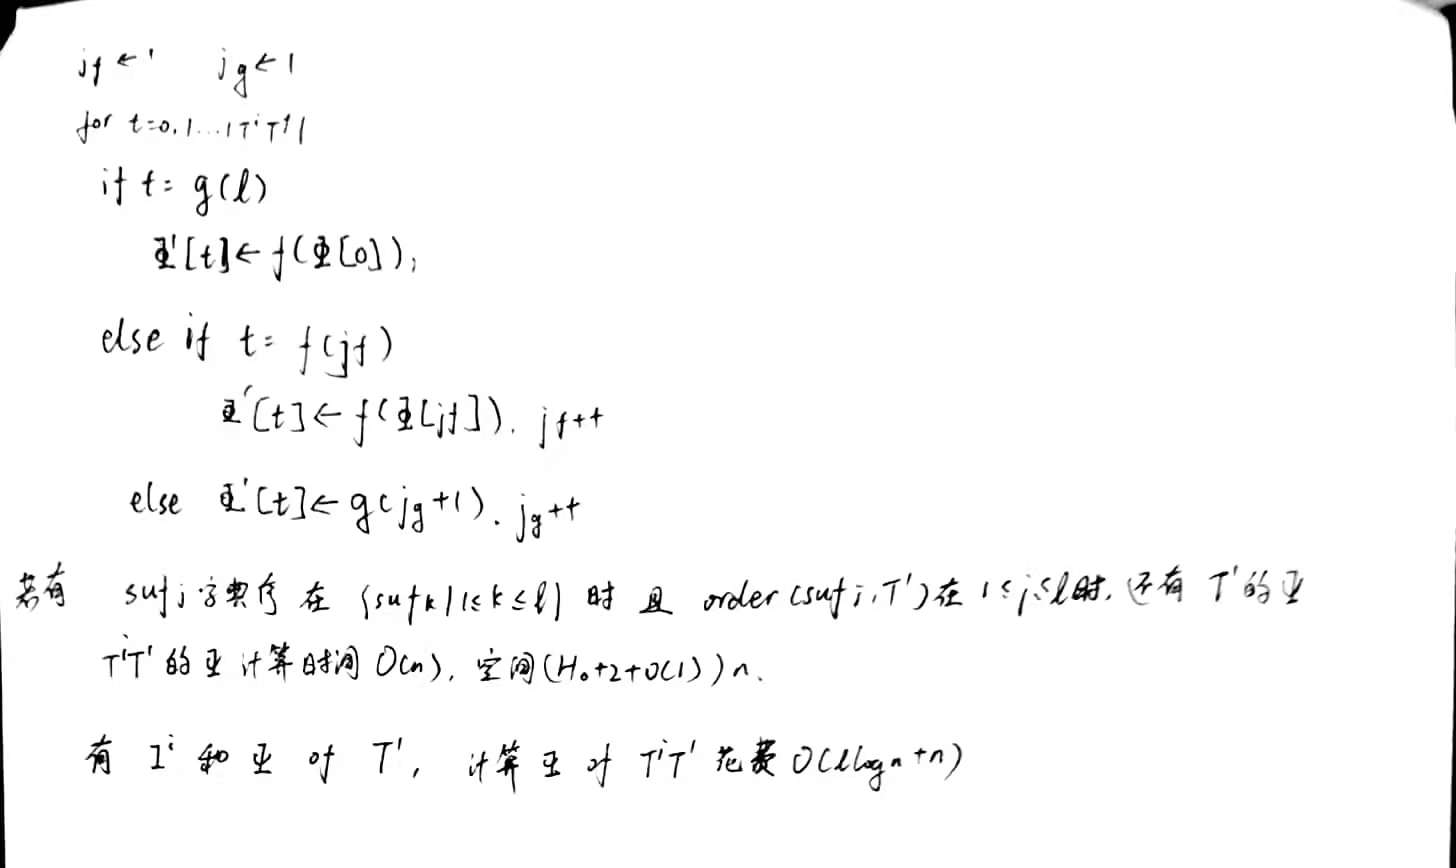 jf ← 1 jg ← 1
for t=0,1...|TⁱT'|
if t= g(l)
Φ'[t] ← f(Φ[0]),
else if t= f(jf)
Φ'[t] ← f(Φ[jf]). jf++
else Φ'[t] ← g(jg+1). jg++
若有 sufj 字典序 在 {sufk|1≤k≤l} 时 且 order(sufj,T')在 1≤j≤l时, 还有 T'的Ψ
TⁱT'的Ψ计算时间O(n), 空间(H₀+2+O(1))n.
有 Iⁱ 和 Ψ of T', 计算 Ψ of TⁱT' 花费 O(llogn+n)